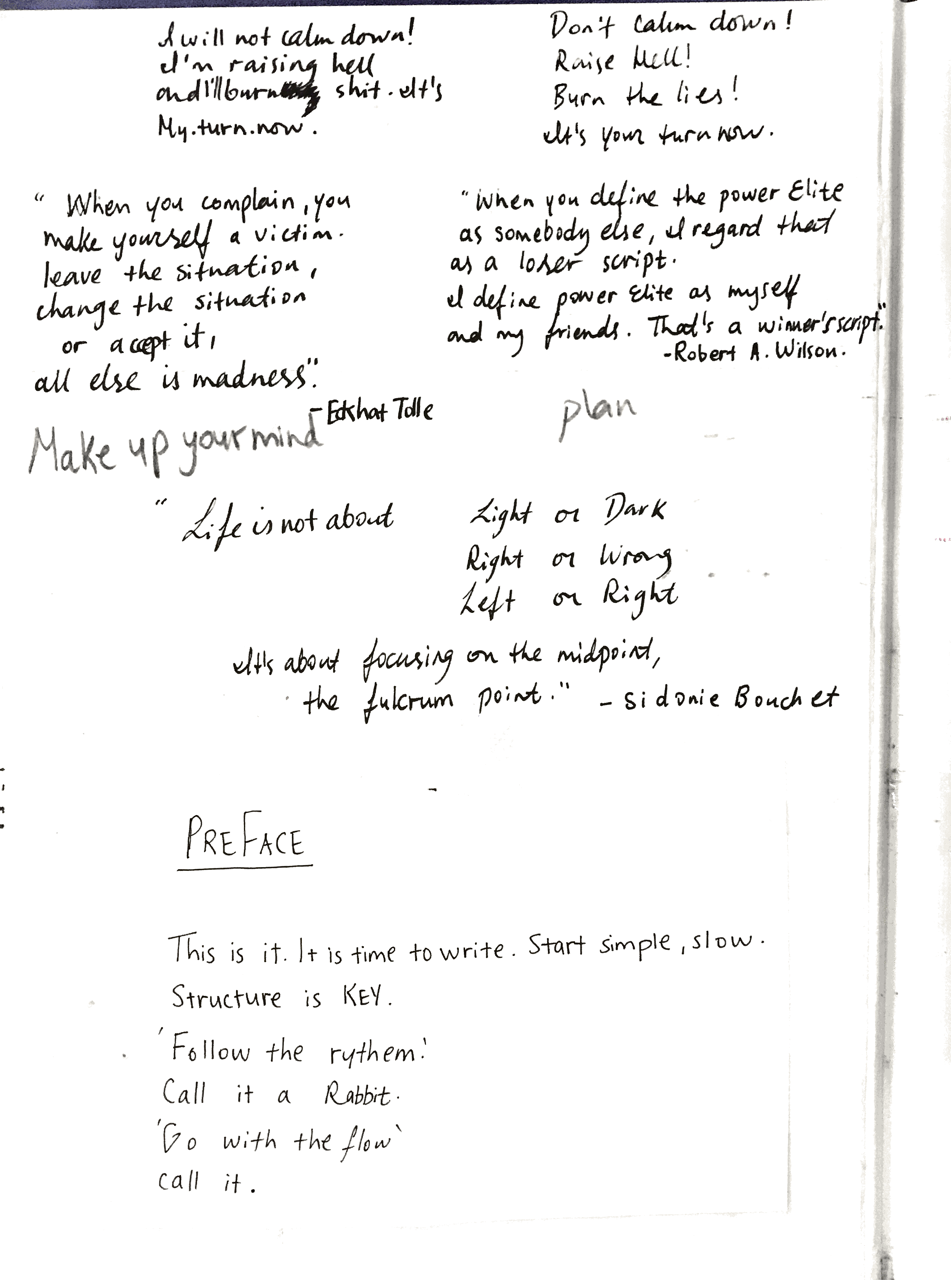 I will not calm down!
I'm raising hell
and I'll burn shit. It's
My.turn.now.
Don't calm down!
Raise Hell!
Burn the lies!
It's your turn now.
" When you complain, you
make yourself a victim.
leave the situation,
change the situation
or accept it,
all else is madness".
- Eckhat Tolle
Make up your mind
"When you define the power Elite
as somebody else, I regard that
as a loser script.
I define power Elite as myself
and my friends. That's a winner's script."
-Robert A. Wilson.
plan
" Life is not about
Light or Dark
Right or Wrong
Left or Right
It's about focusing on the midpoint,
the fulcrum point." - Sidonie Bouchet
PREFACE
This is it. It is time to write. Start simple, slow.
Structure is KEY.
'Follow the rythem.'
Call it a Rabbit.
'Go with the flow'
call it.